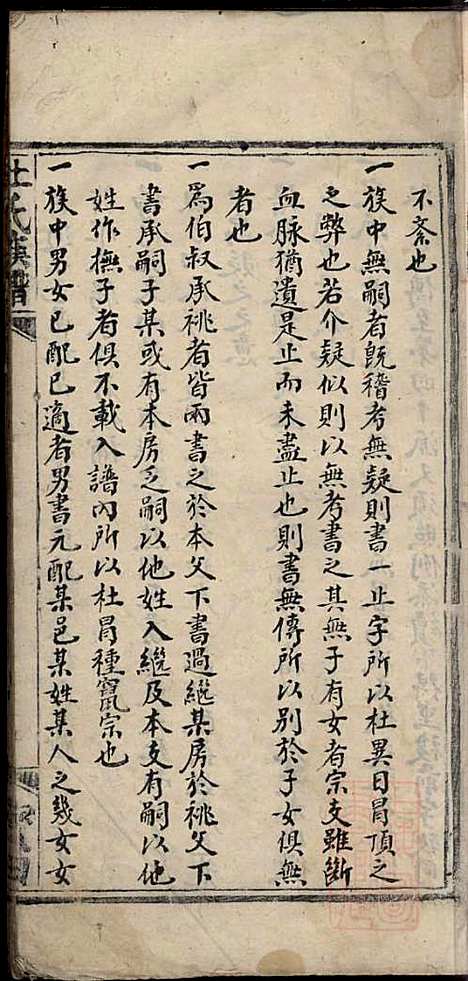 不紊也
一族中無嗣者旣稽考無疑則書一止字所以杜異日冐頂之
之弊也若介疑似則以無考書之其無子有女者宗支雖斷
血脉猶遺是止而未盡止也則書無傳所以别於子女俱無
者也
一爲伯叔承祧者皆兩書之於本父下書過繼某房於祧父下
書承嗣子某或有本房乏嗣以他姓入繼及本支有嗣以他
姓作撫子者俱不載入譜內所以杜冐種竄宗也
一族中男女已配已適者男書元配某邑某姓某人之幾女女
杜氏族譜